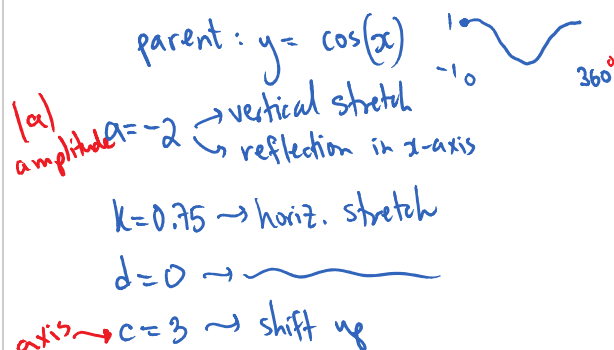 parent: y = cos(x)
1
-1
0
360°
|a|
amplitude
a = -2 → vertical stretch
→ reflection in x-axis
k = 0.75 → horiz. stretch
d = 0 →
axis → c = 3 → shift up